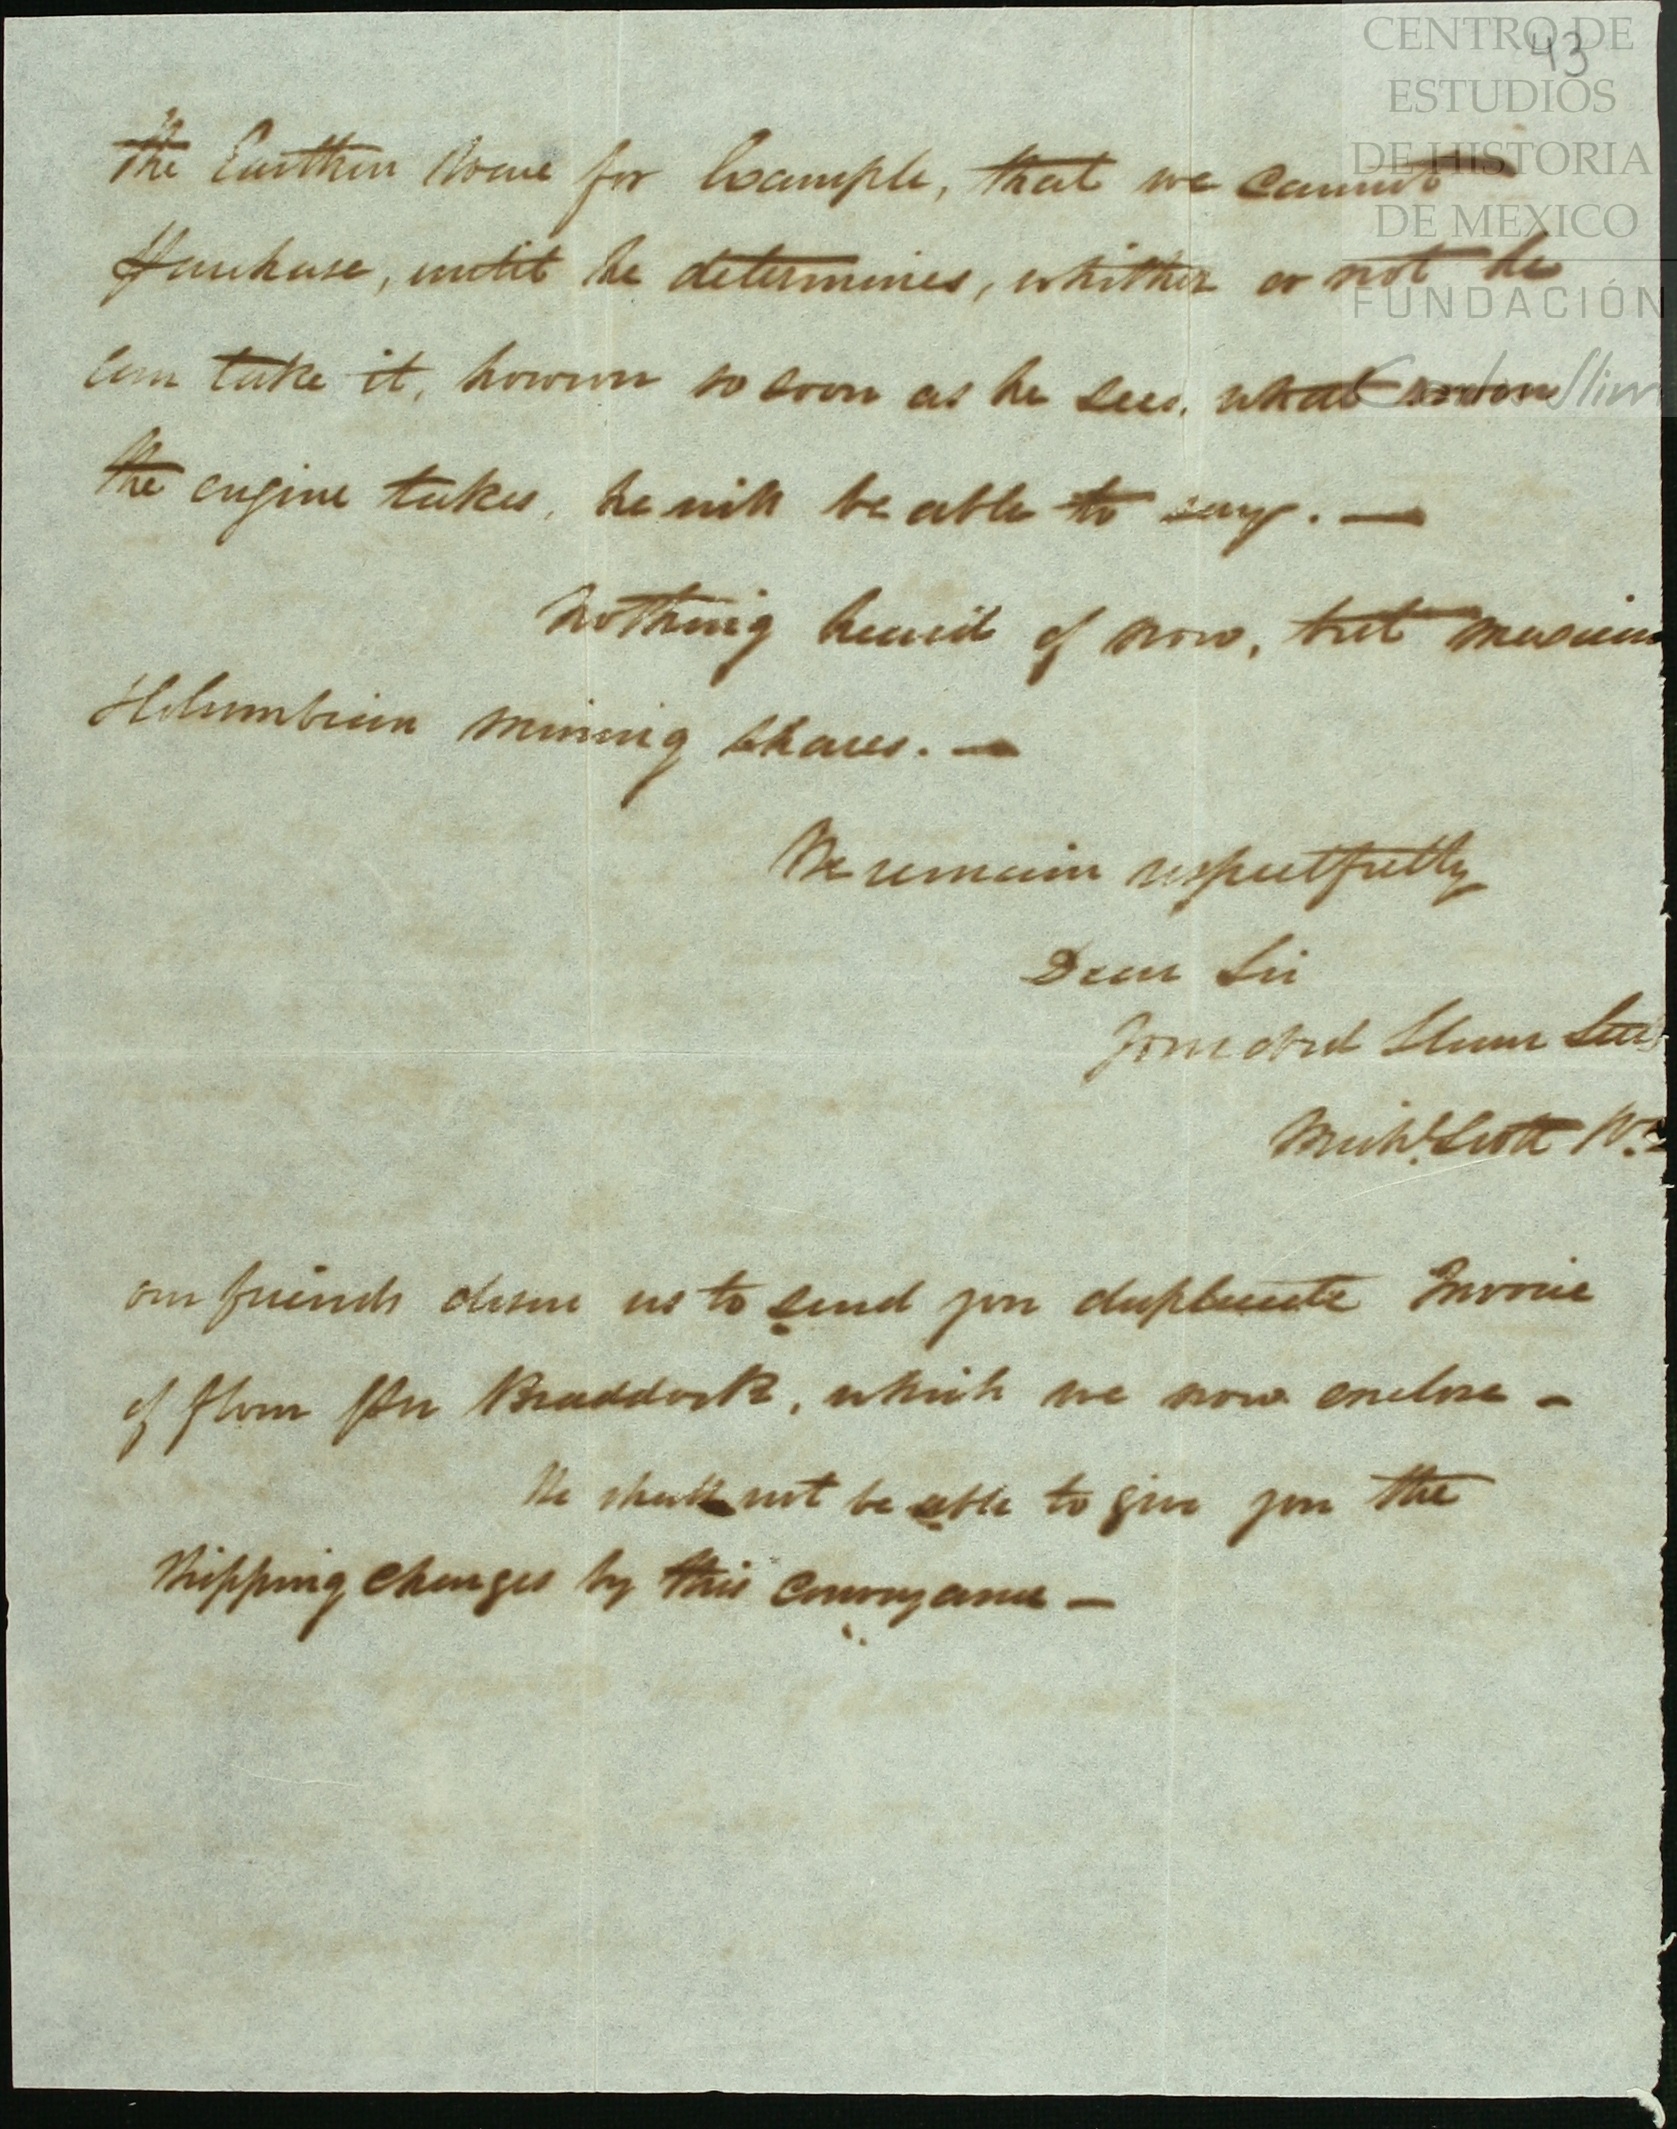 43
CENTRO DE
ESTUDIOS
DE HISTORIA
DE MEXICO
FUNDACIÓN
Carlos Slim
The Earthen Ware for Example, that we cannot
Purchase, until he determines, whither or not he
can take it, however so soon as he sees, what room
the engine takes, he will be able to say. —
Nothing heard of now, but mexican
& Columbian mining Shares. —
We remain respectfully
Dear Sir
Your obed
Scott
our friends desire us to send you duplicate Invoice
of flour Per Braddock, which we now enclose —
We shall not be able to give you the
Shipping Charges by this Conveyance —